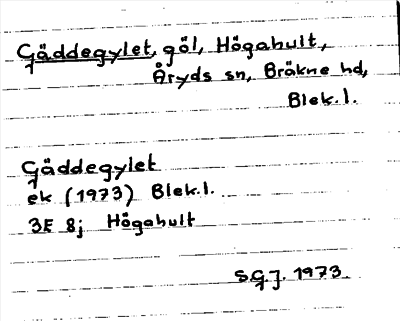 Gäddegylet, göl, Högahult,
Åryds sn, Bräkne hd,
Blek.l.
Gäddegylet
ek (1973) Blek.l.
3E 8j Högahult
S.G.J. 1973.